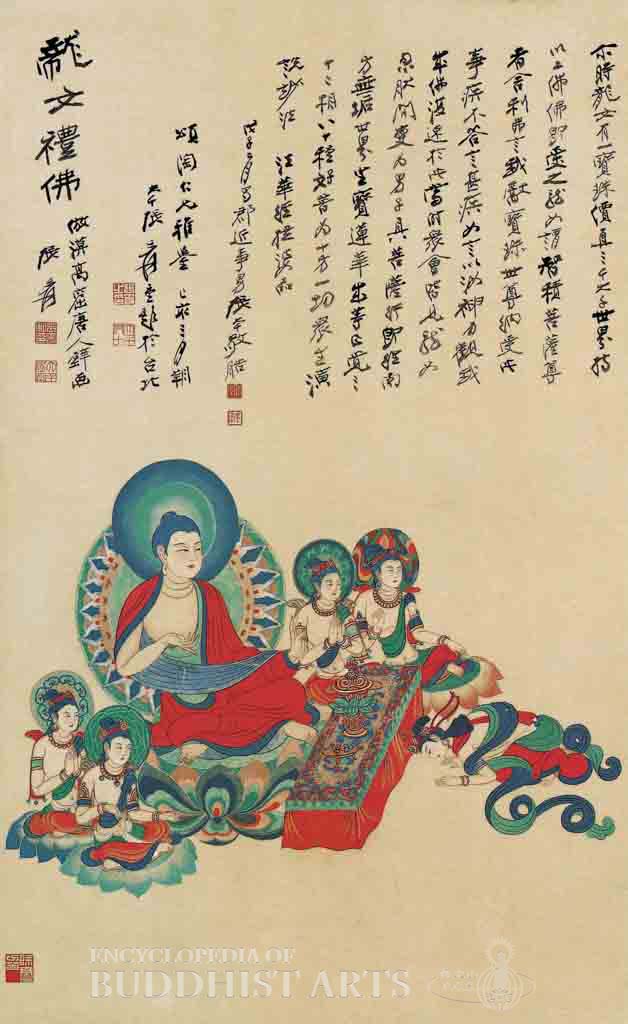 尒時龍女有一寶珠價直三千大千世界持
以上佛佛即受之龍女謂智積菩薩尊
者舍利弗言我獻寶珠世尊納受
事疾不答言甚疾女言以汝神力觀我
成佛復速於此當時眾會皆見龍女
忽然間變為男子具菩薩行即往南
方無垢世界坐寶蓮華成等正覺三
十二相八十種好普為十方一切眾生演
說妙法 法華經提婆品
戊子 月蜀郡近事男張大千敬
頌陶仁兄雅鑒 己丑三月朔
大千張爰重題於台北
龍女禮佛
倣漠高窟唐人壁画
張爰
ENCYCLOPEDIA OF
BUDDHIST ARTS